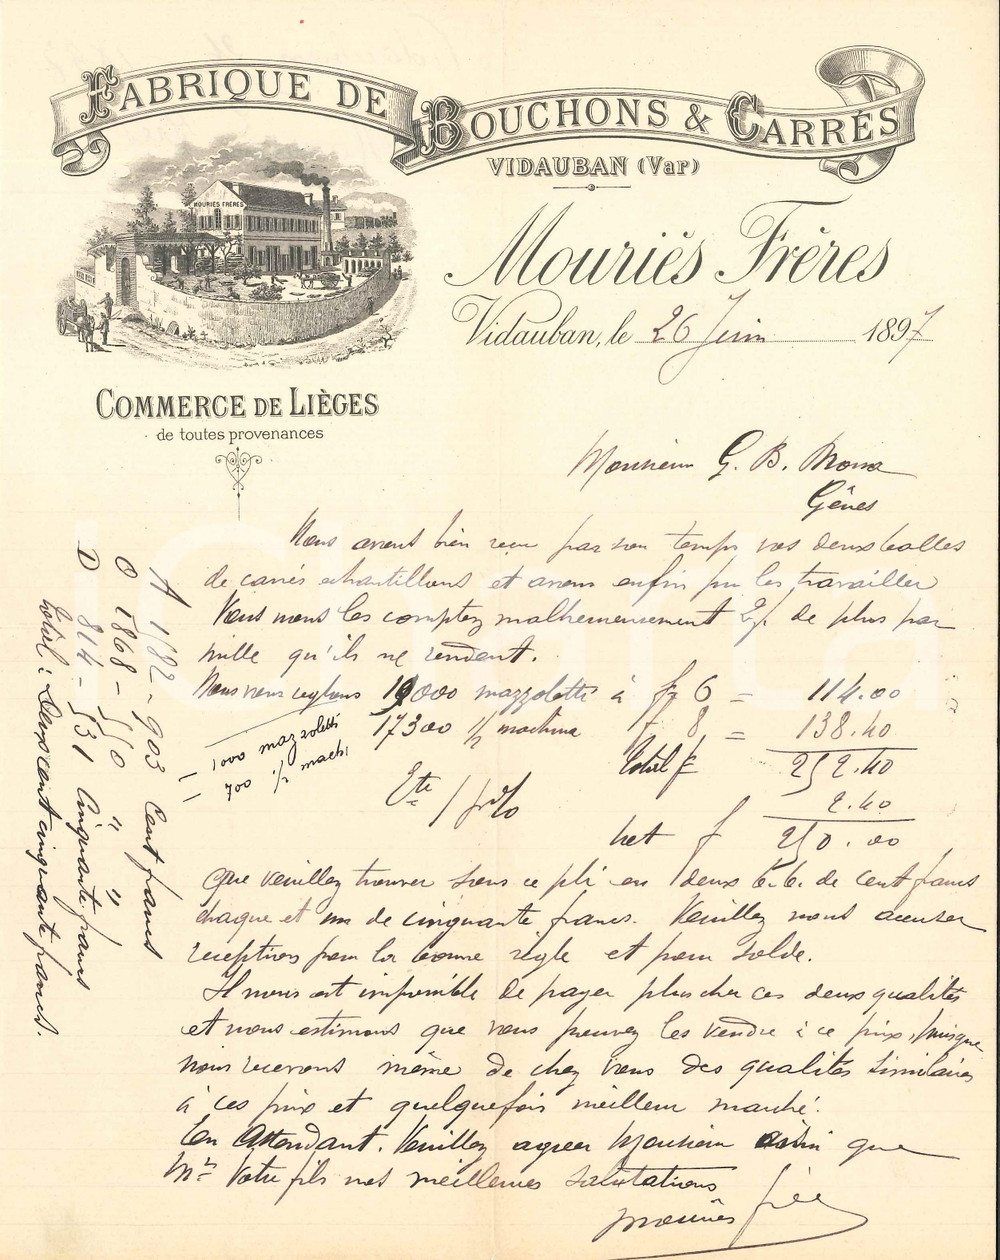 FABRIQUE DE BOUCHONS & CARRÉS
VIDAUBAN (Var)
MOURIÈS FRÈRES
Mouriès Frères
Vidauban, le 26 Juin 1897
COMMERCE DE LIÈGES
de toutes provenances
Monsieur G. B.
Gênes
Nous avons bien reçu par son temps vos deux balles
de carrés échantillons et avons enfin pu les travailler
Vous nous les comptez malheureusement 2f. de plus par
mille qu'ils ne rendent.
Nous vous réglons 19000 mazzoletti à fr 6 = 114.00
17300 ½ machina f 8 = 138.40
1000 mazzoletti
700 ½ mach:
Total f 252.40
2.40
net f 250.00
que veuillez trouver sous ce pli en deux b.b. de cent francs
chaque et un de cinquante francs. Veuillez nous accuser
réception pour la bonne règle et pour solde.
Il nous est impossible de payer plus cher ces deux qualités
et nous estimons que vous pouvez les vendre à ce prix, puisque
nous recevons même de chez vous des qualités similaires
à ces prix et quelquefois meilleur marché.
En attendant, Veuillez agréer Monsieur ainsi que
Mr Votre fils nos meilleures salutations
Mouriès frères
A 1582 - 903 Cent francs
O 1868 - 550 " "
D 814 - 531 Cinquante francs
Total : Deux cent cinquante francs.